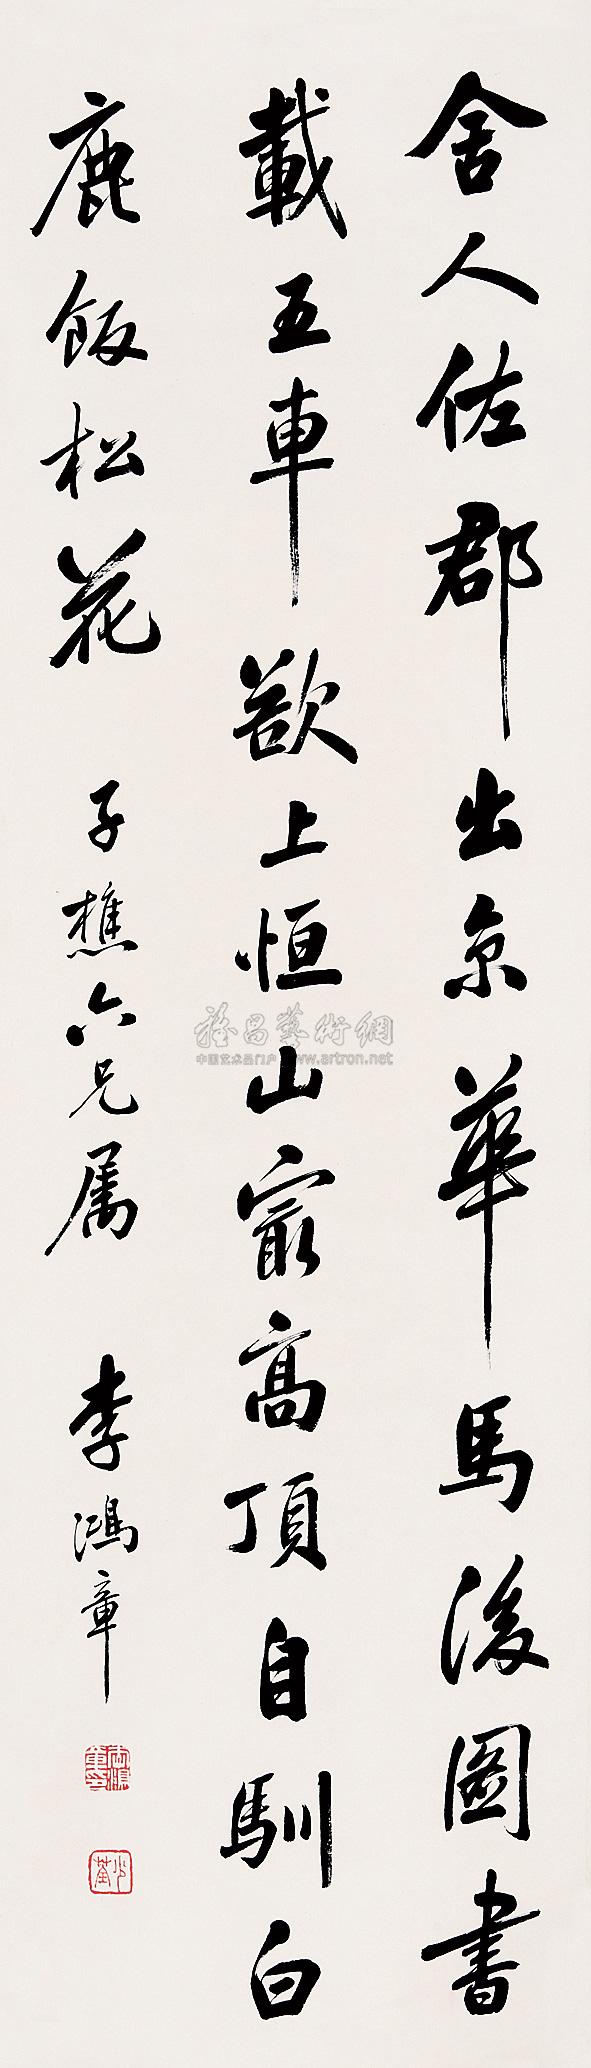 舍人佐郡出京華馬後圖書
載五車欲上恒山最高頂自馴白
鹿飯松花
子樵六兄屬
李鴻章
雅昌藝術網
中国艺术品门户 www.artron.net
少荃